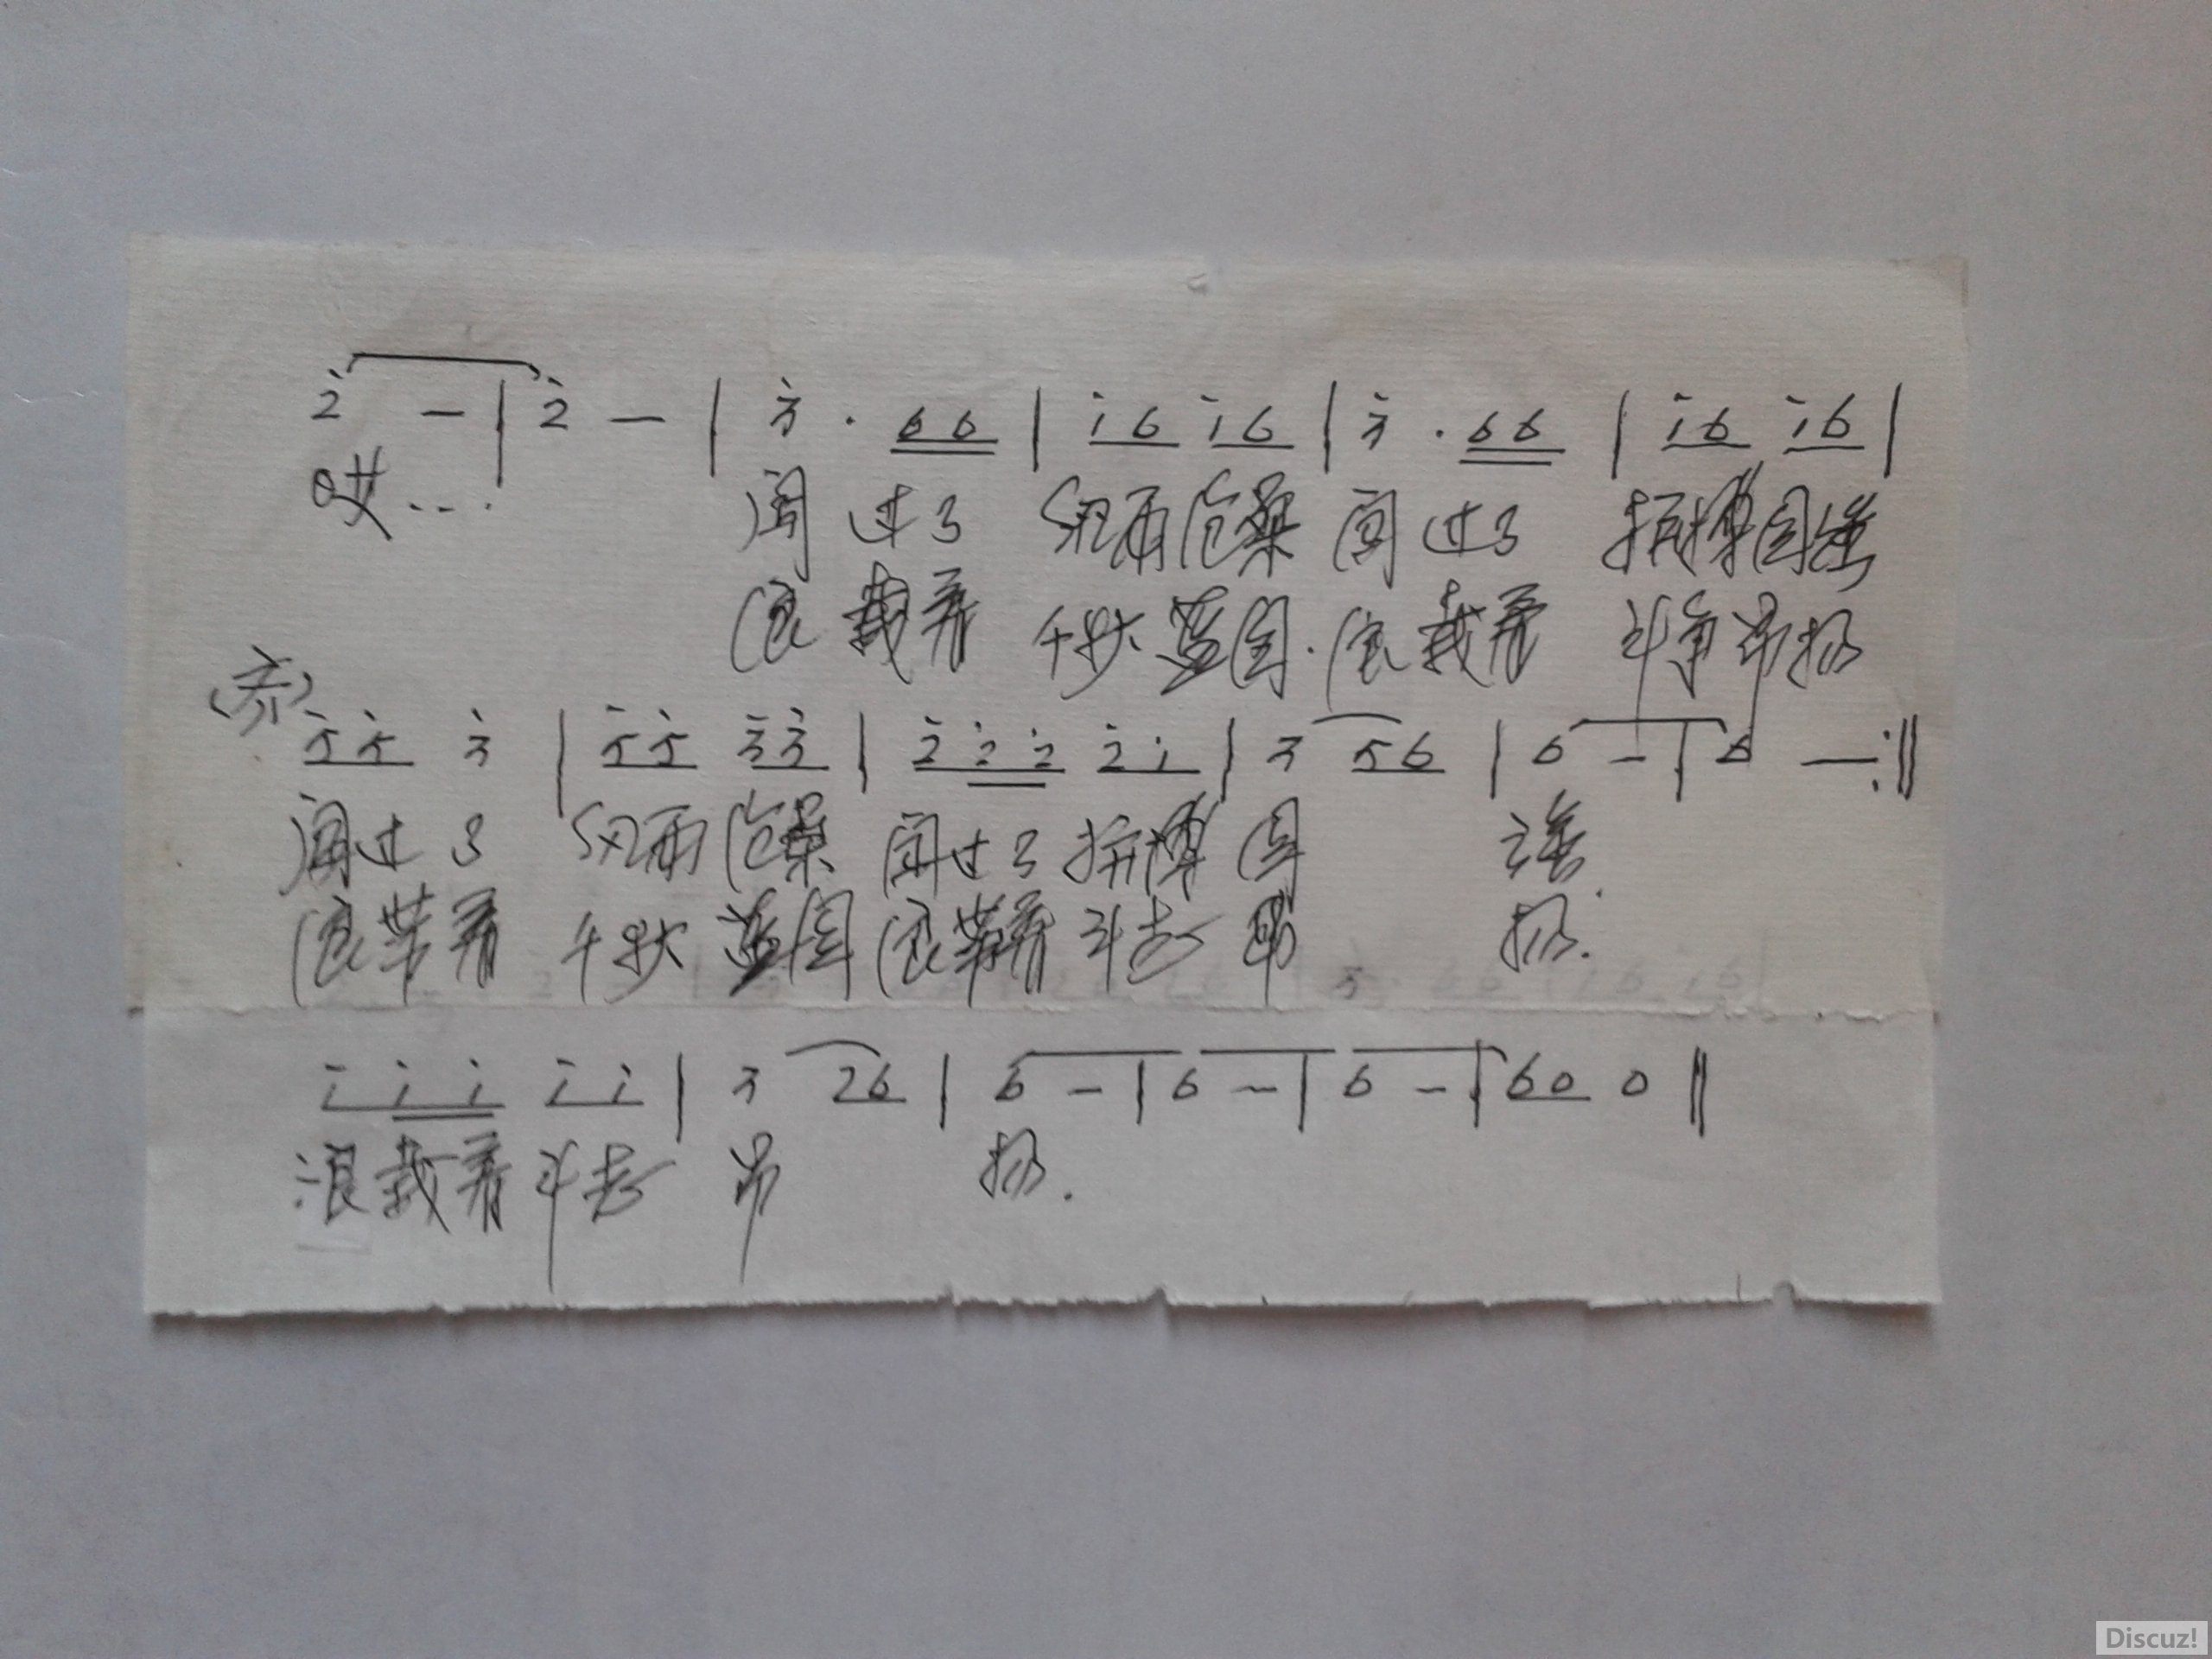 2̇ — | 2̇ — | 3̇ · 66 | 1̇6 1̇6 | 3̇ · 66 | 1̇6 1̇6 |
哎... 闯过了 风雨沧桑 闯过了 拼搏图强
浪载着 千秋蓝图. 浪载着 斗争昂扬
(齐)
5̇5̇ 3̇ | 5̇5̇ 3̇3̇ | 2̇2̇2̇ 2̇1̇ | 3 56 | 6 — | 6 — :‖
闯过了 风雨沧桑 闯过了拼搏图 强.
浪带着 千秋蓝图 浪带着斗志昂 扬.
1̇1̇1̇ 1̇1̇ | 3 26 | 6 — | 6 — | 6 — | 60 0 ‖
浪载着斗志 昂 扬.
Discuz!